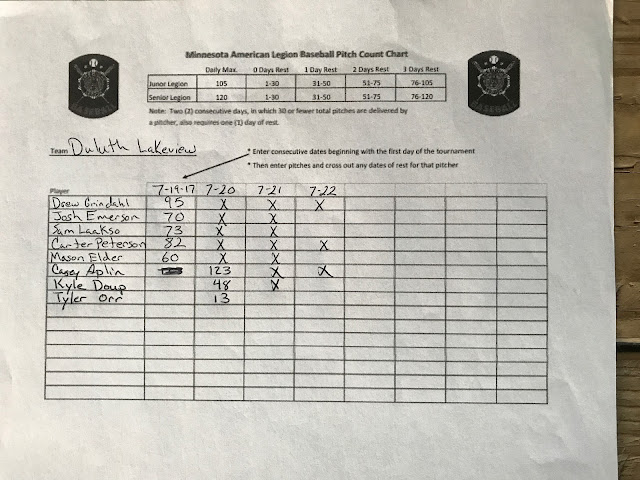 Minnesota American Legion Baseball Pitch Count Chart
Daily Max. 0 Days Rest 1 Day Rest 2 Days Rest 3 Days Rest
Junor Legion 105 1-30 31-50 51-75 76-105
Senior Legion 120 1-30 31-50 51-75 76-120
Note: Two (2) consecutive days, in which 30 or fewer total pitches are delivered by
a pitcher, also requires one (1) day of rest.
Team Duluth Lakeview
* Enter consecutive dates beginning with the first day of the tournament
* Then enter pitches and cross out any dates of rest for that pitcher
Player 7-19-17 7-20 7-21 7-22
Drew Grindahl 95 X X X
Josh Emerson 70 X X
Sam Laakso 73 X X
Carter Peterson 82 X X X
Mason Elder 60 X X
Casey Aplin 123 X X
Kyle Doup 48 X
Tyler Orr 13